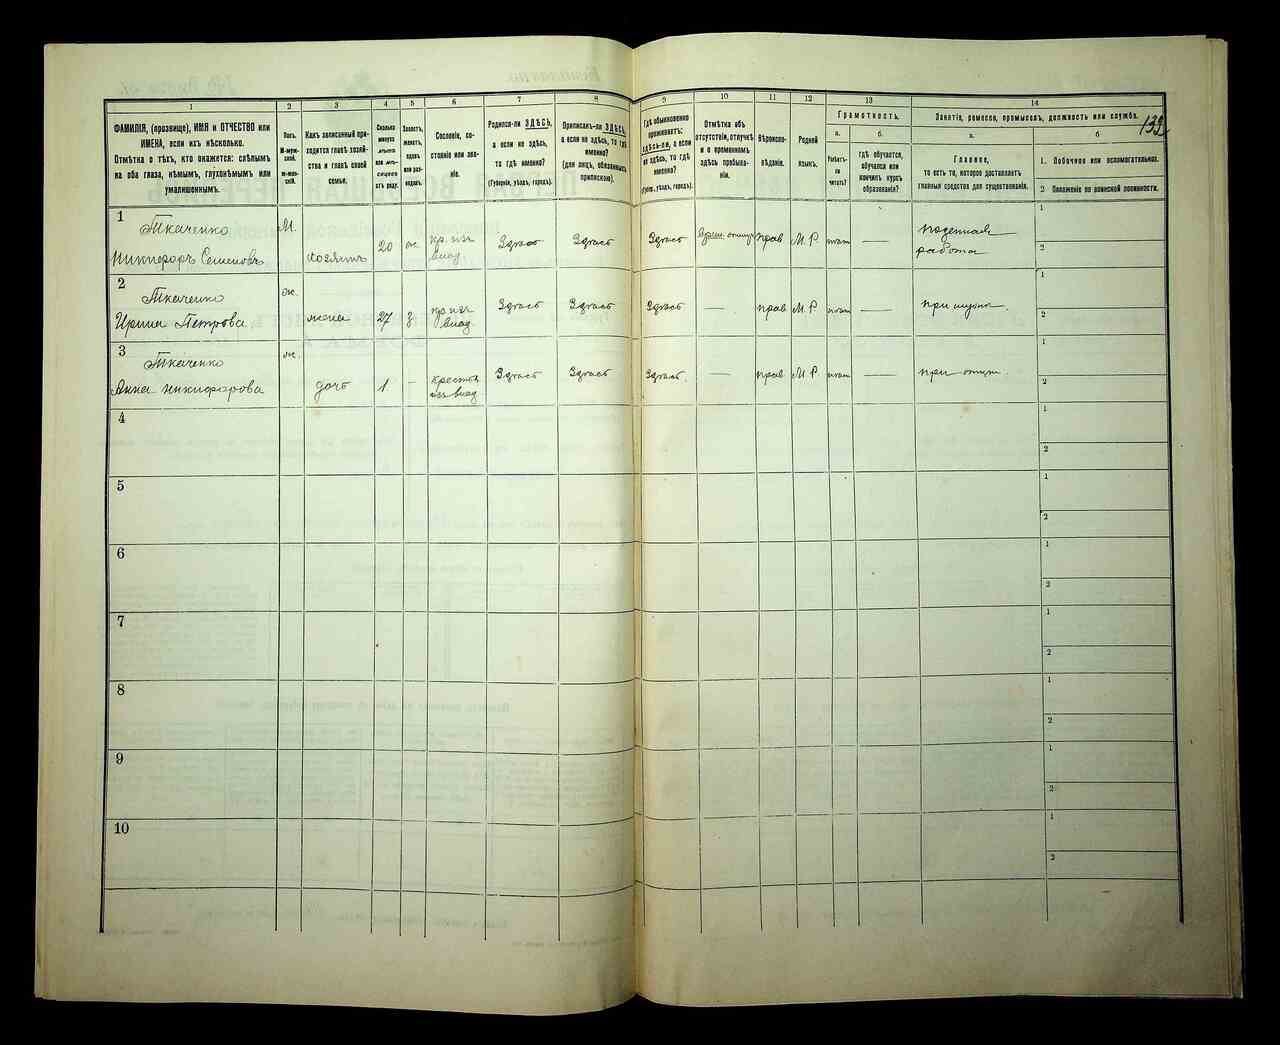 132
1
2
3
4
5
6
7
8
9
10
11
12
13
14
ФАМИЛІЯ, (прозвище), ИМЯ и ОТЧЕСТВО или
ИМЕНА, если ихъ нѣсколько.
Отмѣтка о тѣхъ, кто окажется: слѣпымъ
на оба глаза, нѣмымъ, глухонѣмымъ или
умалишоннымъ.
Полъ.
М-муж-
ской.
Ж-жен-
скій.
Какъ записанный при-
ходится главѣ хозяй-
ства и главѣ своей
семьи.
Сколько
минуло
лѣтъ
или мѣ-
сяцевъ
отъ роду.
Холостъ,
женатъ,
вдовъ
или раз-
веденъ.
Сословіе, со-
стояніе или зва-
ніе.
Родился-ли ЗДѢСЬ,
а если не здѣсь,
то гдѣ именно?
(Губернія, уѣздъ, городъ).
Приписанъ-ли ЗДѢСЬ,
а если не здѣсь, то гдѣ
именно?
(для лицъ, обязанныхъ
припискою).
Гдѣ обыкновенно
проживаетъ:
ЗДѢСЬ-ЛИ, а если
не здѣсь, то гдѣ
именно?
(Губерн., уѣздъ, городъ).
Отмѣтка объ
отсутствіи, отлучкѣ
и о временномъ
здѣсь пребыва-
ніи.
Вѣроиспо-
вѣданіе.
Родной
языкъ.
Грамотность.
а.
Умѣетъ-
ли
читать?
б.
гдѣ обучается,
обучался или
кончилъ курсъ
образованія?
Занятіе, ремесло, промыселъ, должность или служба.
а.
Главное,
то есть то, которое доставляетъ
главныя средства для существованія.
б
1. Побочное или вспомогательное.
2 Положеніе по воинской повинности.
1
Ткаченко
Никифоръ Семеновъ
М.
хозяинъ
20
ж.
кр. изъ
влад
Здѣсь
Здѣсь
Здѣсь
прав
М. Р.
—
поденная
работа
1
2
2
Ткаченко
Ирина Петрова
ж.
жена
27
з
кр. изъ
влад.
Здѣсь
Здѣсь
Здѣсь
—
прав
М. Р.
—
при мужѣ
1
2
3
Ткаченко
Анна Никифорова
ж.
дочь
1
—
крестья
изъ влад
Здѣсь
Здѣсь
Здѣсь.
—
прав
М. Р.
—
при отцѣ.
1
2
4
1
2
5
1
2
6
1
2
7
1
2
8
1
2
9
1
2
10
1
2